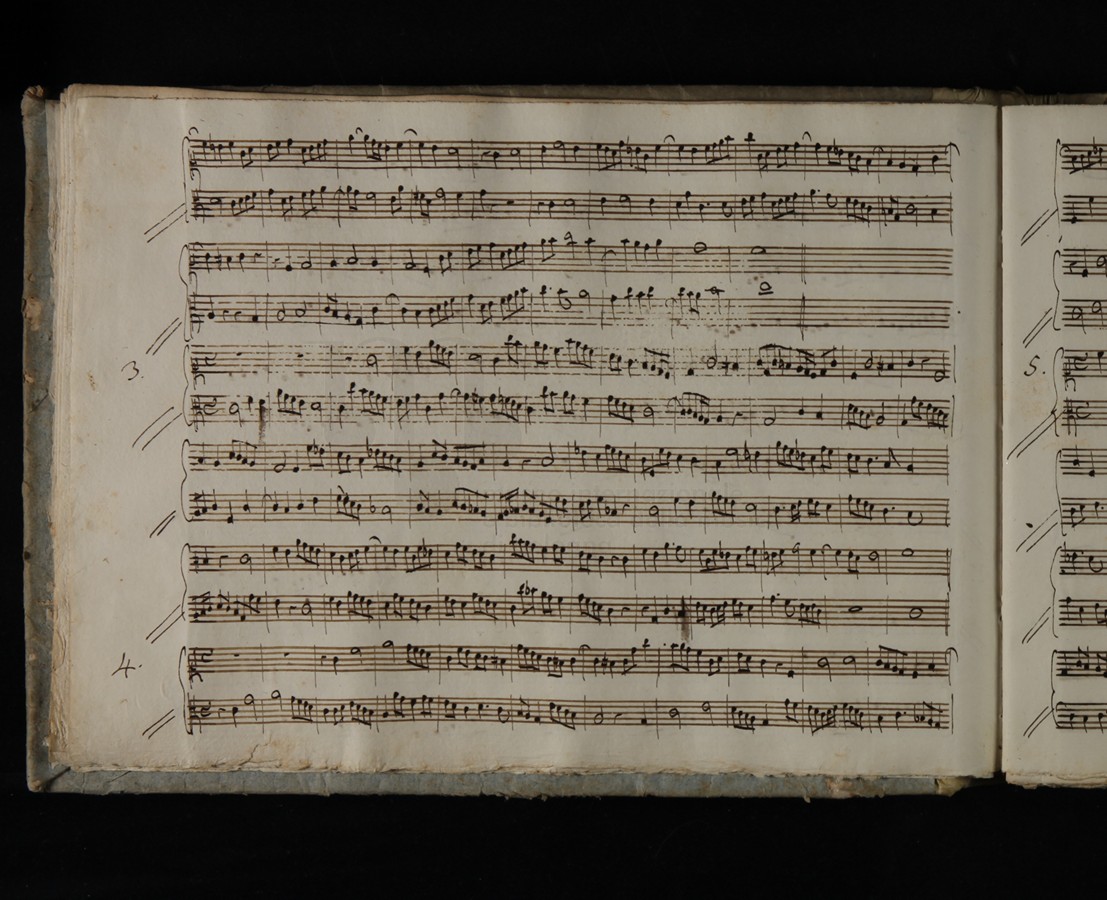 3.
4.
5.